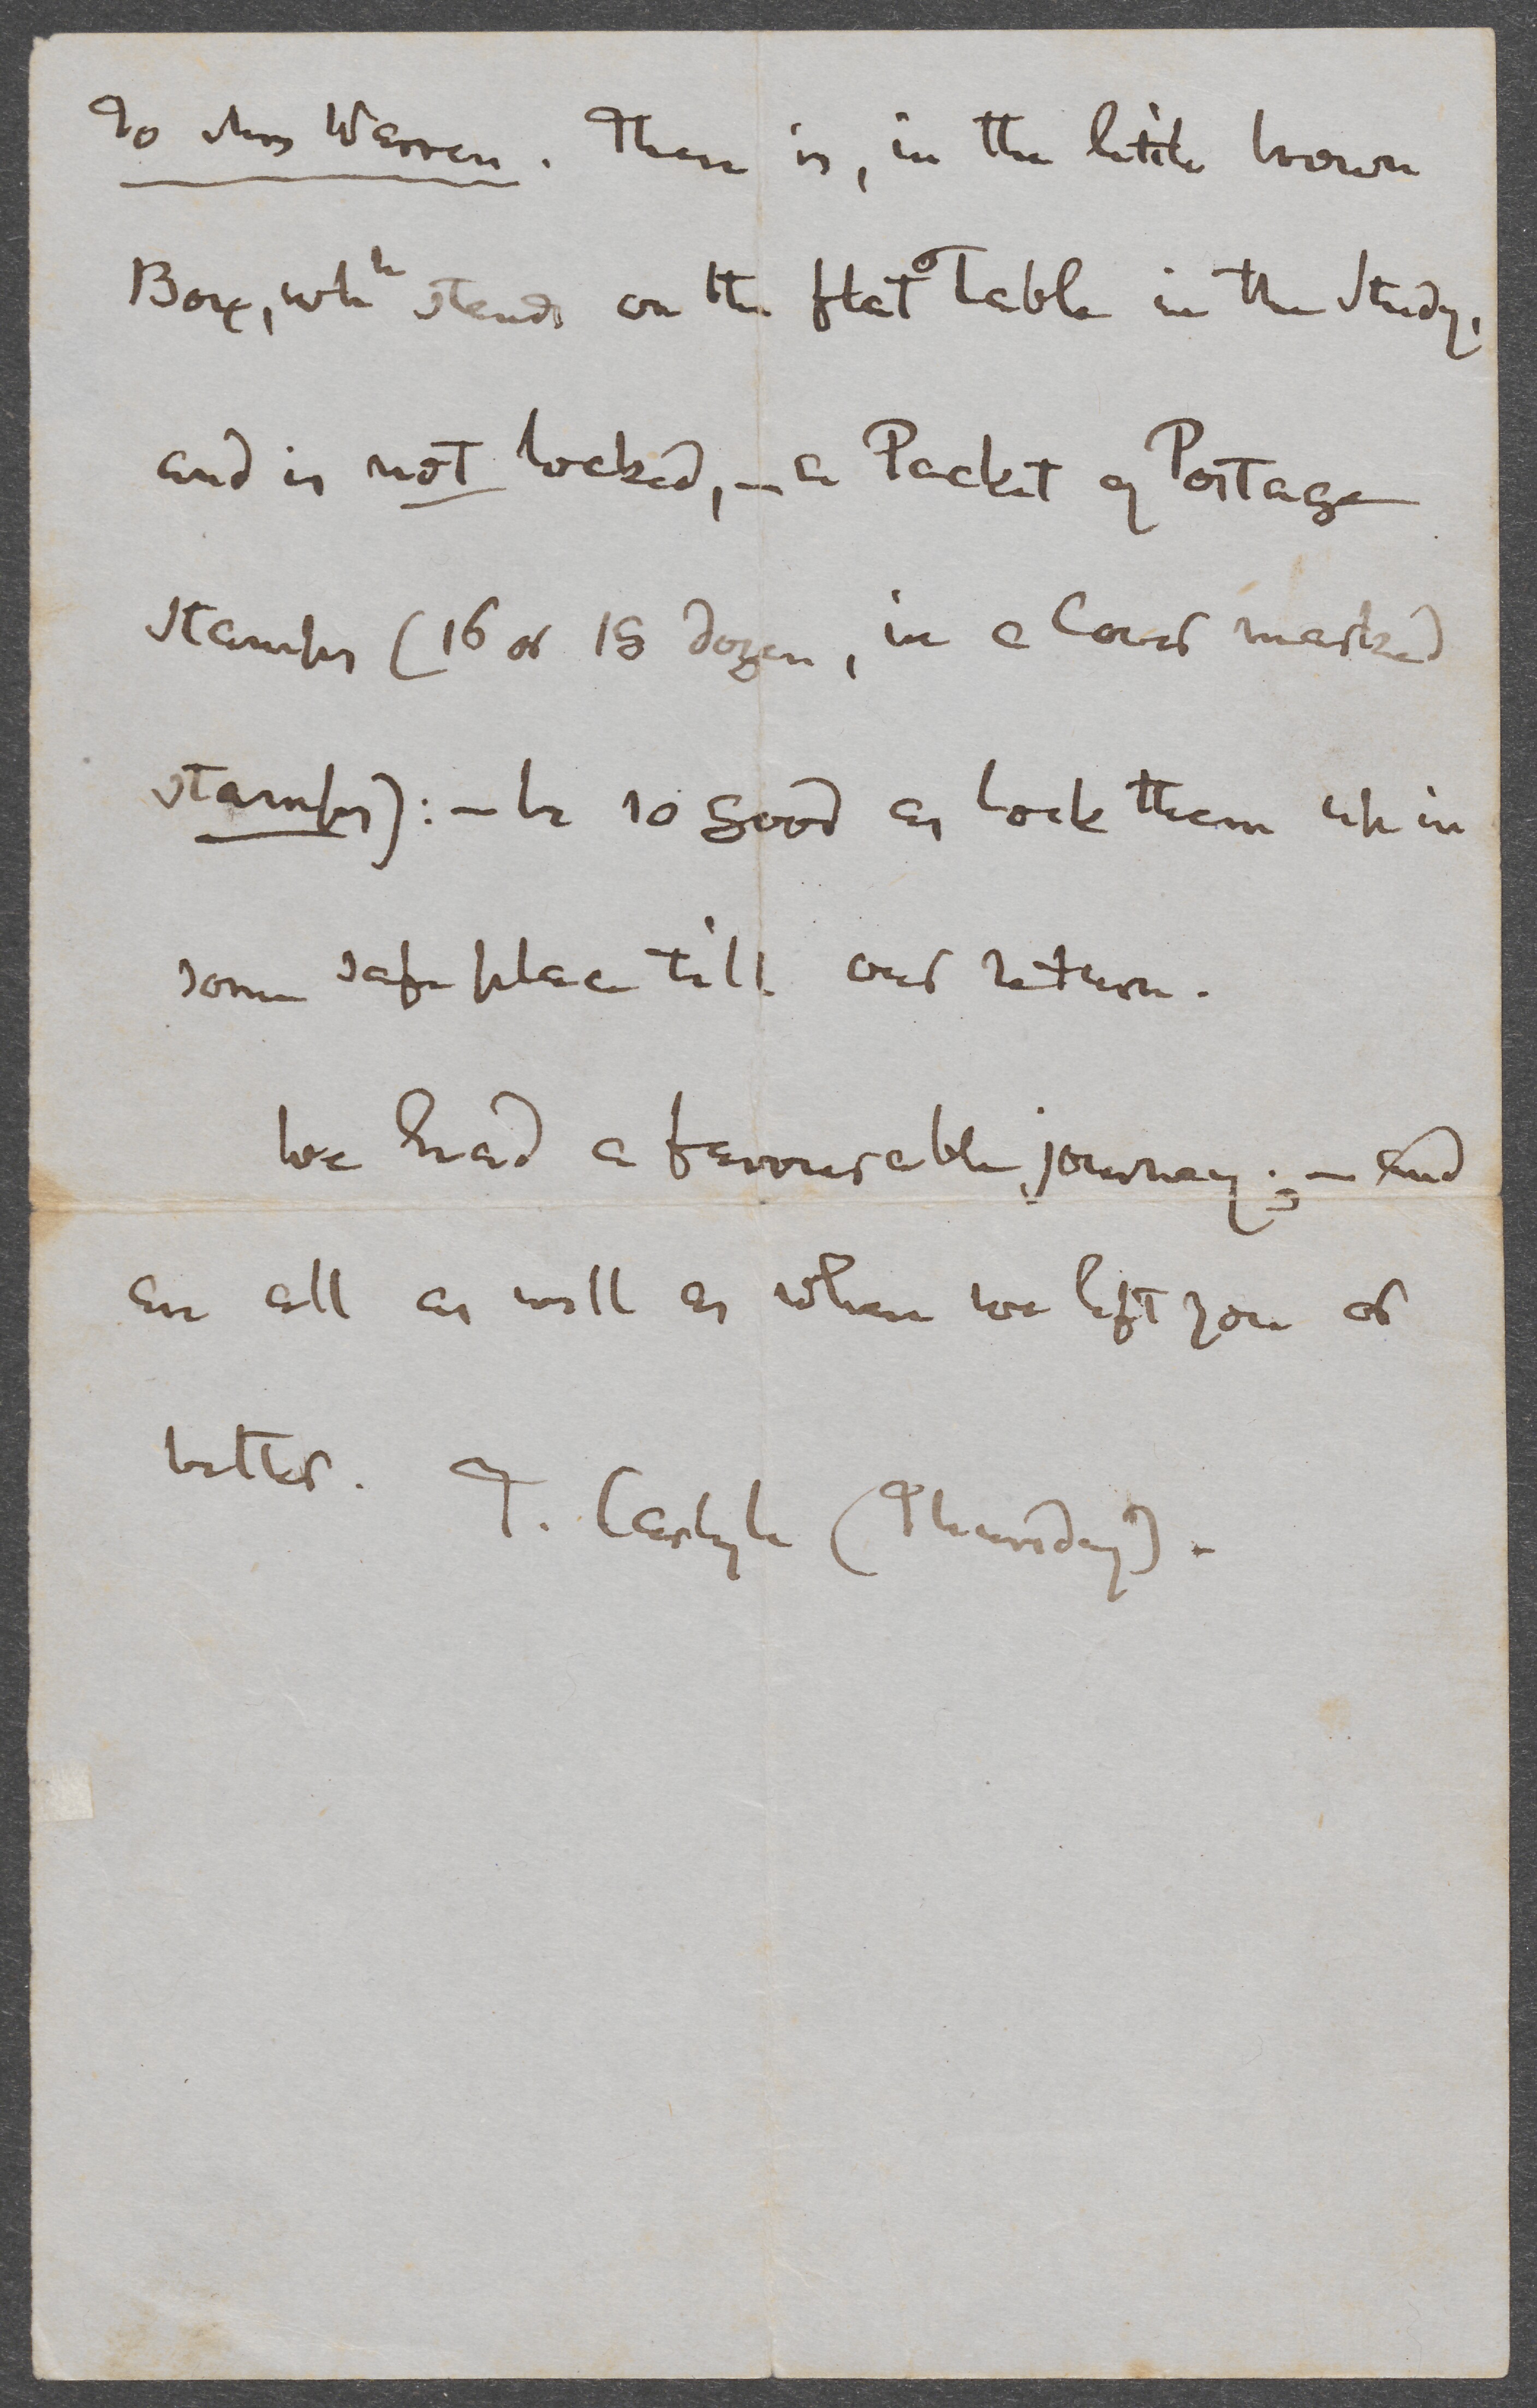 To Mrs Warren. There is, in the little brown
Box, whh stands on the flat Table in the Study,
and is not locked,—a Packet of Postage
Stamps (16 or 18 dozen, in a Cover marked
Stamps):—be so good as lock them up in
some safe place till our return.
We had a favourable journey;—and
are all as well as when we left you or
better. T. Carlyle (Thursday).-